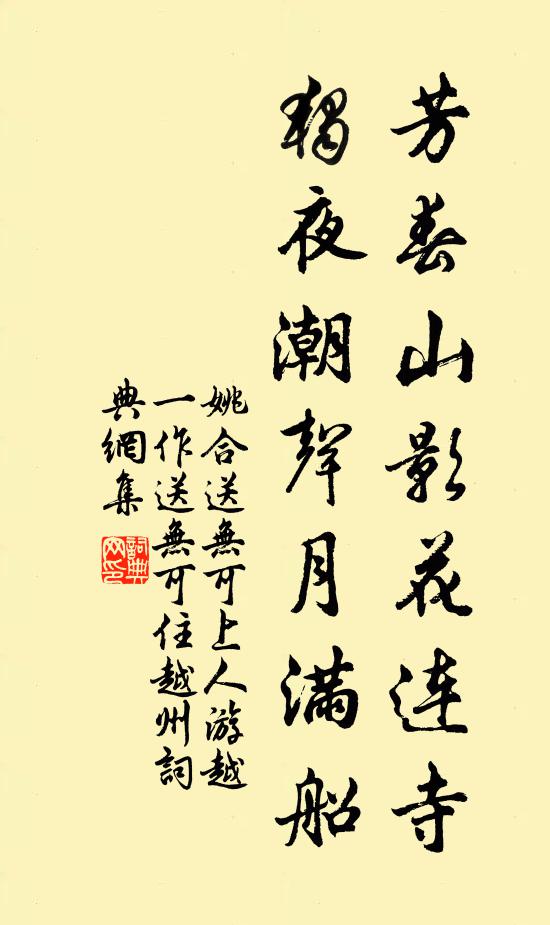 芳春山影花連寺
獨夜潮聲月滿船
姚合送無可上人游越
一作送無可住越州詞
典網集
詞典網印